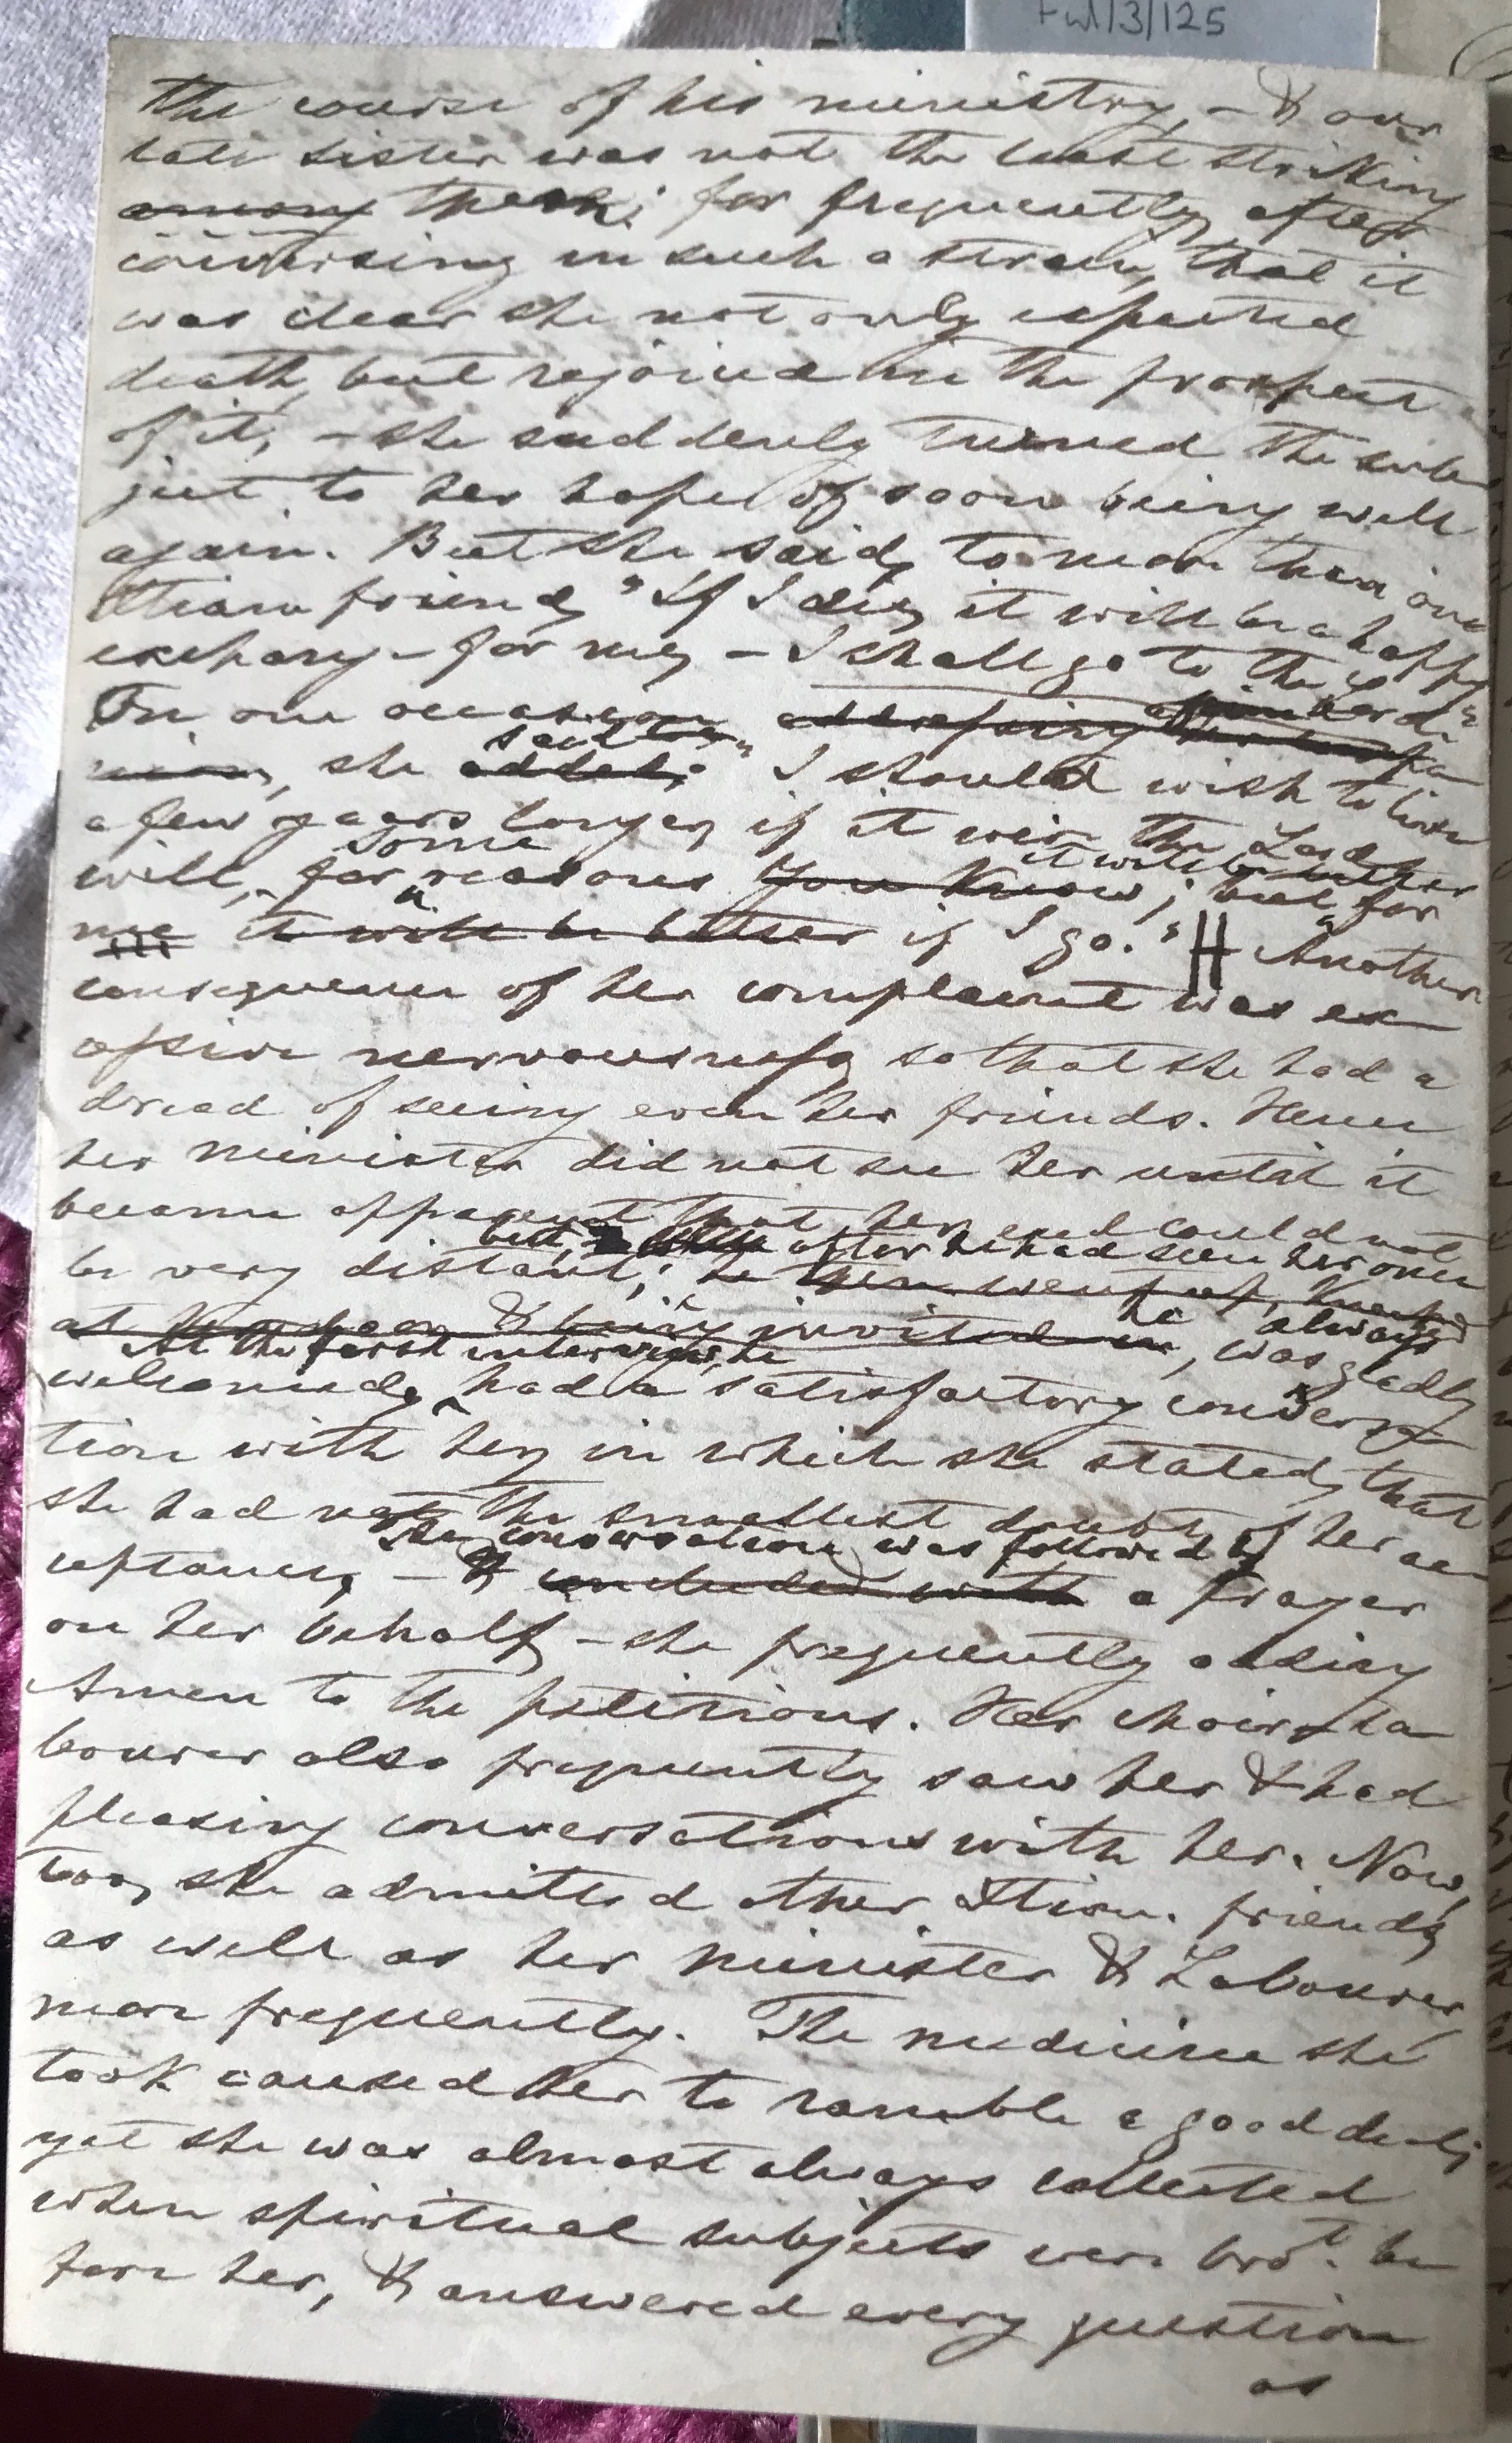 Fwl/3/125
the course of his ministry, – & our
late sister was not the least striking
among them; for frequently, after
conversing in such a strain, that it
was clear she not only expected
death, but rejoiced in the prospect
of it, – she suddenly turned the sub
ject to her hope of soon being well
again. But she said, to more than one
Xtian friend, "If I die, it will be a happy
exchange for me, – I shall go to the Lord."
On one occasion addressing
she added: said to "I should wish to live
a few years longer, if it were the Lord's
will, for some reasons you know; but for
it will be better
me it will be better if I go." H Another
consequence of her complaint was ex
cessive nervousness, so that she had a
dread of seeing even her friends. Hence
her minister did not see her until it
became apparent that her end could not
but, after he had seen her once
be very distant; he then went up, knocked
at & being invited in, he was always gladly
At the first interview, he
welcomed, had a satisfactory conversa
tion with her, in which she stated, that
she had not the smallest doubt of her ac
The conversation was followed by
ceptance, – & concluded with a prayer
on her behalf, – she frequently adding
Amen to the petitions. Her Choir-La
bourer also frequently saw her & had
pleasing conversations with her. Now,
too, she admitted other Xtian. friends,
as well as her minister & Labourer,
more frequently. The medicine she
took caused her to ramble a good deal;
yet she was almost always collected
when spiritual subjects were brot. be
fore her, & answered every question
as